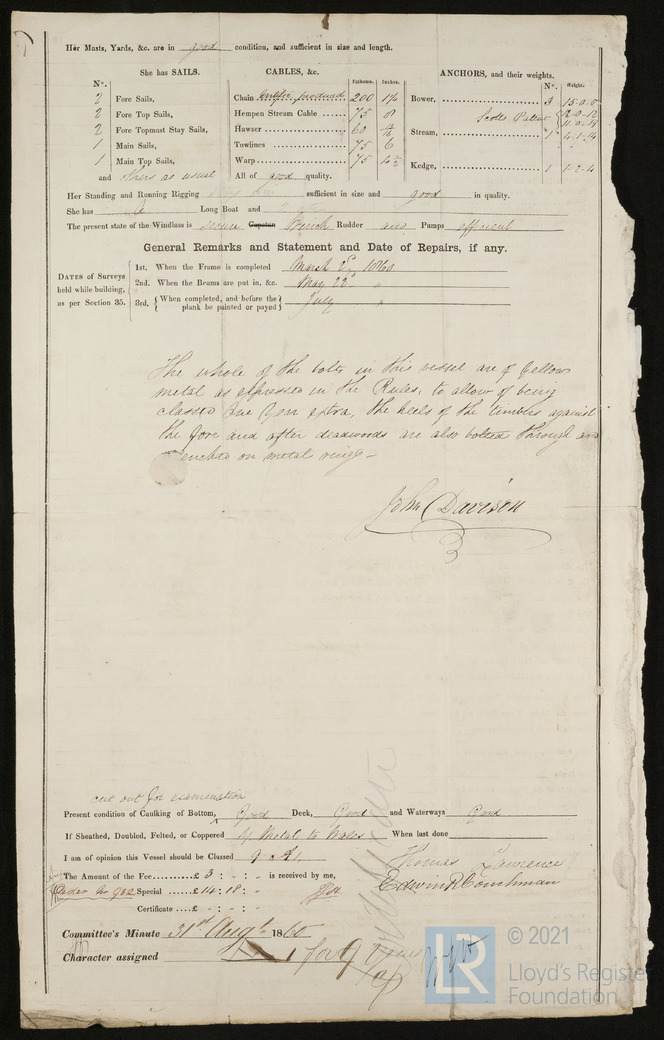 Her Masts, Yards, &c. are in good condition, and sufficient in size and length.
She has SAILS.
No.
2 Fore Sails,
2 Fore Top Sails,
2 Fore Topmast Stay Sails,
1 Main Sails,
1 Main Top Sails,
and others as usual
CABLES, &c.
Fathoms. Inches.
Chain produced 200
Hempen Stream Cable 75 8
Hawser 60
Towlines 75 6
Warp 75 4½
All of good quality.
ANCHORS, and their weights.
No. Weight.
Bower, 3 15-0-0
12-0-12
11-0-14
Stream, 1 4-1-14
Kedge, 1 1-2-4
Her Standing and Running Rigging sufficient in size and good in quality.
She has a Long Boat and
The present state of the Windlass is secure Capstan Winch Rudder and Pumps efficient
General Remarks and Statement and Date of Repairs, if any.
DATES of Surveys held while building, as per Section 35.
1st. When the Frame is completed March 2d, 1860
2nd. When the Beams are put in, &c. May 22d "
3rd. { When completed, and before the plank be painted or payed } July "
The whole of the bolts in this vessel are of yellow
metal as expressed in the Rules, to allow of being
classed One Year extra, the heels of the timbers against
the fore and after deadwoods are also bolted through and
clenched on metal rings –
John Davison
cut out for examination
Present condition of Caulking of Bottom, Good Deck, Good and Waterways Good
If Sheathed, Doubled, Felted, or Coppered Y Metal to Wales When last done
I am of opinion this Vessel should be Classed 9 A1,
Thomas Lawrence
The Amount of the Fee £ 5 : - : - is received by me,
Edwin R Couchman
Order No 902 Special £ 14 : 18 : -
Certificate £ - : - : -
Committee's Minute 31st Augt 1860
Character assigned A 1 for 9 Years
LR
© 2021
Lloyd's Register
Foundation